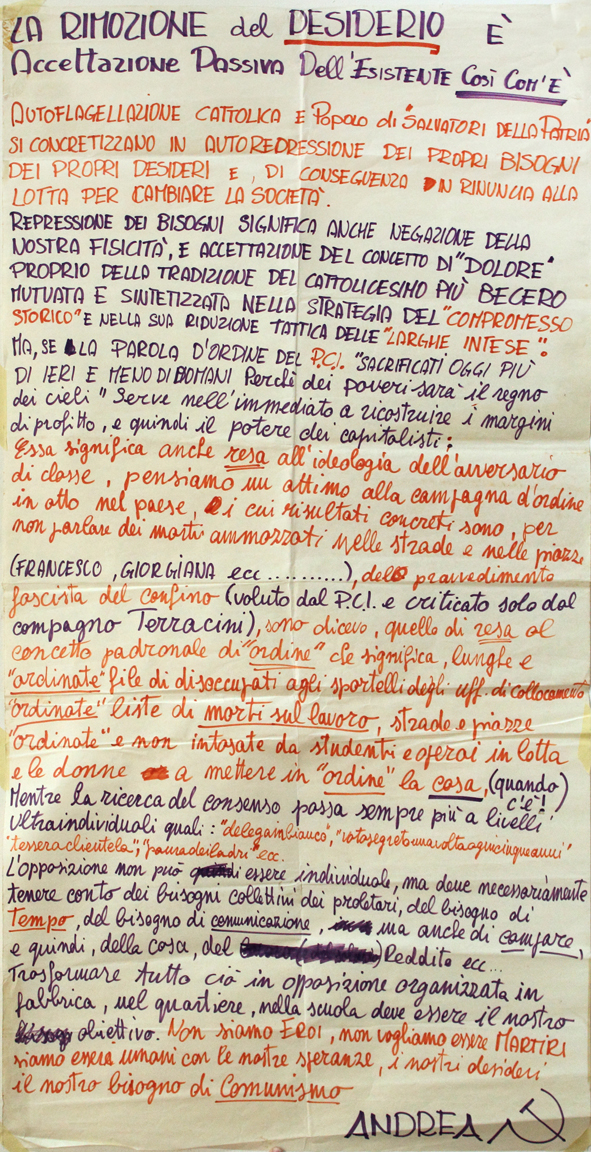 LA RIMOZIONE del DESIDERIO È
ACCETTAZIONE PASSIVA Dell'ESISTENTE COSÌ COM'È
AUTOFLAGELLAZIONE CATTOLICA E POPOLO di "SALVATORI DELLA PATRIA"
SI CONCRETIZZANO IN AUTOREPRESSIONE DEI PROPRI BISOGNI
DEI PROPRI DESIDERI E, DI CONSEGUENZA IN RINUNCIA ALLA
LOTTA PER CAMBIARE LA SOCIETÀ.
REPRESSIONE DEI BISOGNI SIGNIFICA ANCHE NEGAZIONE DELLA
NOSTRA FISICITÀ, E ACCETTAZIONE DEL CONCETTO DI "DOLORE"
PROPRIO DELLA TRADIZIONE DEL CATTOLICESIMO PIÙ BECERO
MUTUATA E SINTETIZZATA NELLA STRATEGIA DEL "COMPROMESSO
STORICO" E NELLA SUA RIDUZIONE TATTICA DELLE "LARGHE INTESE".
MA, SE LA PAROLA D'ORDINE DEL P.C.I. "SACRIFICATI OGGI PIÙ
DI IERI E MENO DI DOMANI Perchè dei poveri sarà il regno
dei cieli" Serve nell'immediato a ricostruire i margini
di profitto, e quindi il potere dei capitalisti:
Essa significa anche resa all'ideologia dell'avversario
di classe, pensiamo un attimo alla campagna d'ordine
in atto nel paese, i cui risultati concreti sono, per
non parlare dei morti ammazzati nelle strade e nelle piazze
(FRANCESCO, GIORGIANA ecc..........), del provvedimento
fascista del confino (voluto dal P.C.I. e criticato solo dal
compagno Terracini), sono dicevo, quello di resa al
concetto padronale di "ordine" che significa, lunghe e
"ordinate" file di disoccupati agli sportelli degli uff. di collocamento
"ordinate" liste di morti sul lavoro, strade e piazze
"ordinate" e non intasate da studenti e operai in lotta
e le donne a mettere in "ordine" la casa, (quando
c'è!)
Mentre la ricerca del consenso passa sempre più a livelli
Ultraindividuali quali: "delega in bianco", "vota segreto una volta ogni cinque anni"
"tessera clientela", "paura dei ladri" ecc.
L'opposizione non può essere individuale, ma deve necessariamente
tenere conto dei bisogni collettivi dei proletari, del bisogno di
tempo, del bisogno di comunicazione, ma anche di campare,
e quindi, della casa, del Reddito ecc...
Trasformare tutto ciò in opposizione organizzata in
fabbrica, nel quartiere, nella scuola deve essere il nostro
obiettivo. Non siamo EROI, non vogliamo essere MARTIRI
siamo esseri umani con le nostre speranze, i nostri desideri
il nostro bisogno di Comunismo
ANDREA